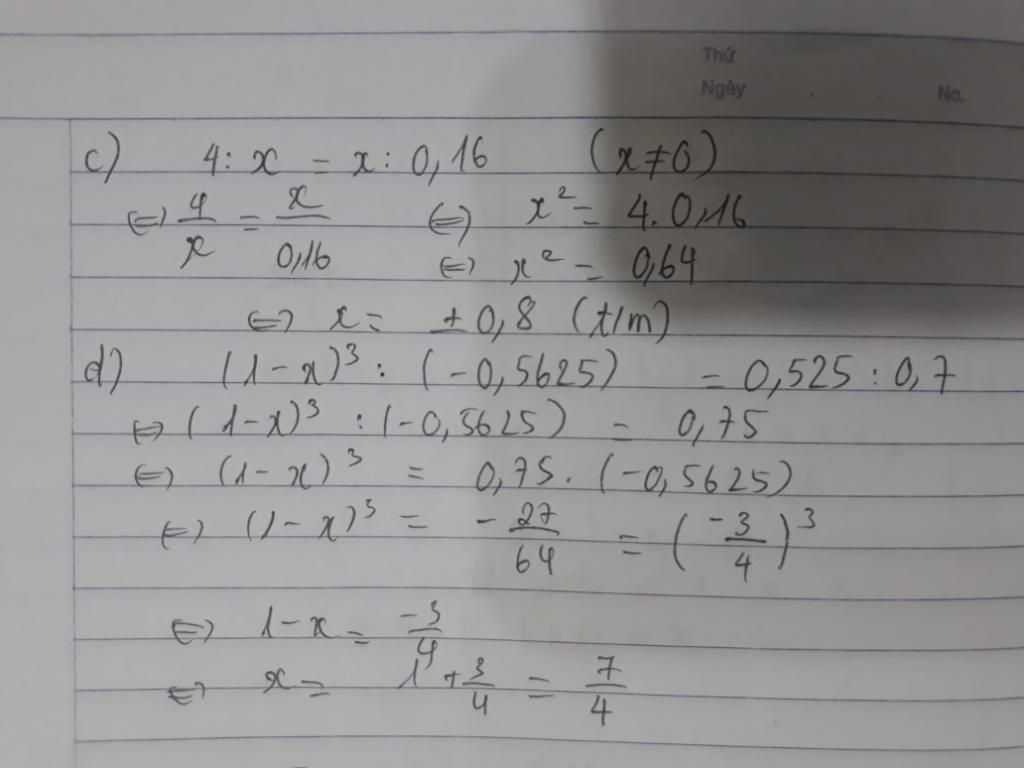 Thứ
Ngày . . No.
c) 4 : x = x : 0,16 (x ≠ 0)
⇔ 4/x = x/0,16 ⇔ x² = 4.0,16
⇔ x² = 0,64
⇔ x = ± 0,8 (t/m)
d) (1-x)³ : (-0,5625) = 0,525 : 0,7
⇔ (1-x)³ : (-0,5625) = 0,75
⇔ (1-x)³ = 0,75. (-0,5625)
⇔ (1-x)³ = - 27/64 = (-3/4)³
⇔ 1-x = -3/4
⇔ x = 1 + 3/4 = 7/4